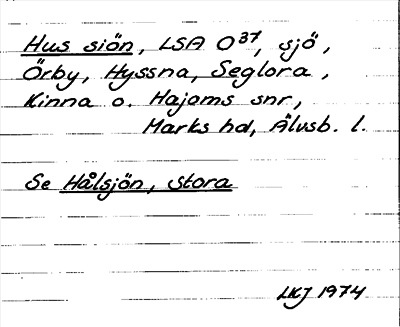 Hus siön, LSA O37, sjö,
Örby, Hyssna, Seglora,
Kinna o. Hajoms snr,
Marks hd, Älvsb. l.
Se Hålsjön, stora
LKJ 1974